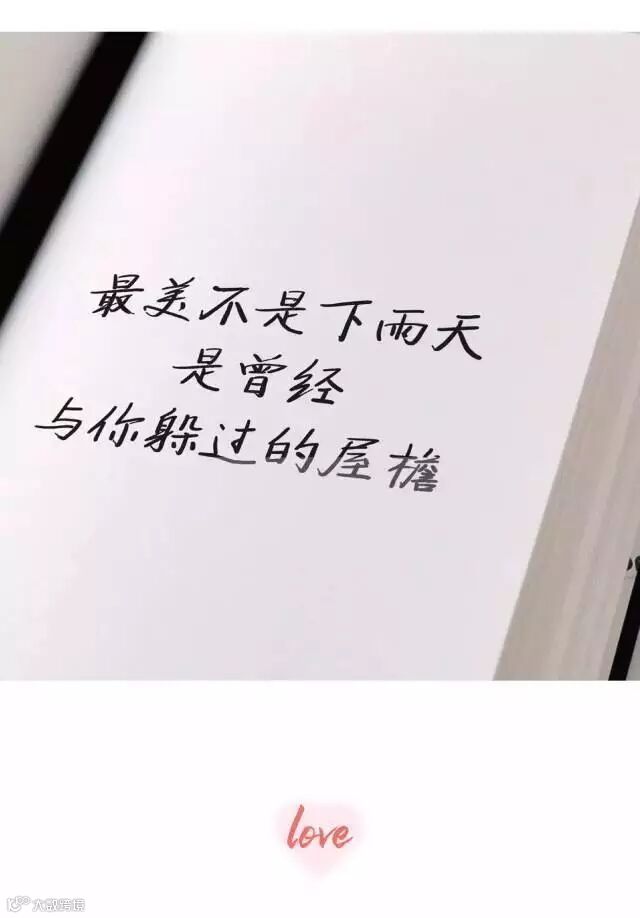 最美不是下雨天
是曾经
与你躲过的屋檐
love
大数跨境